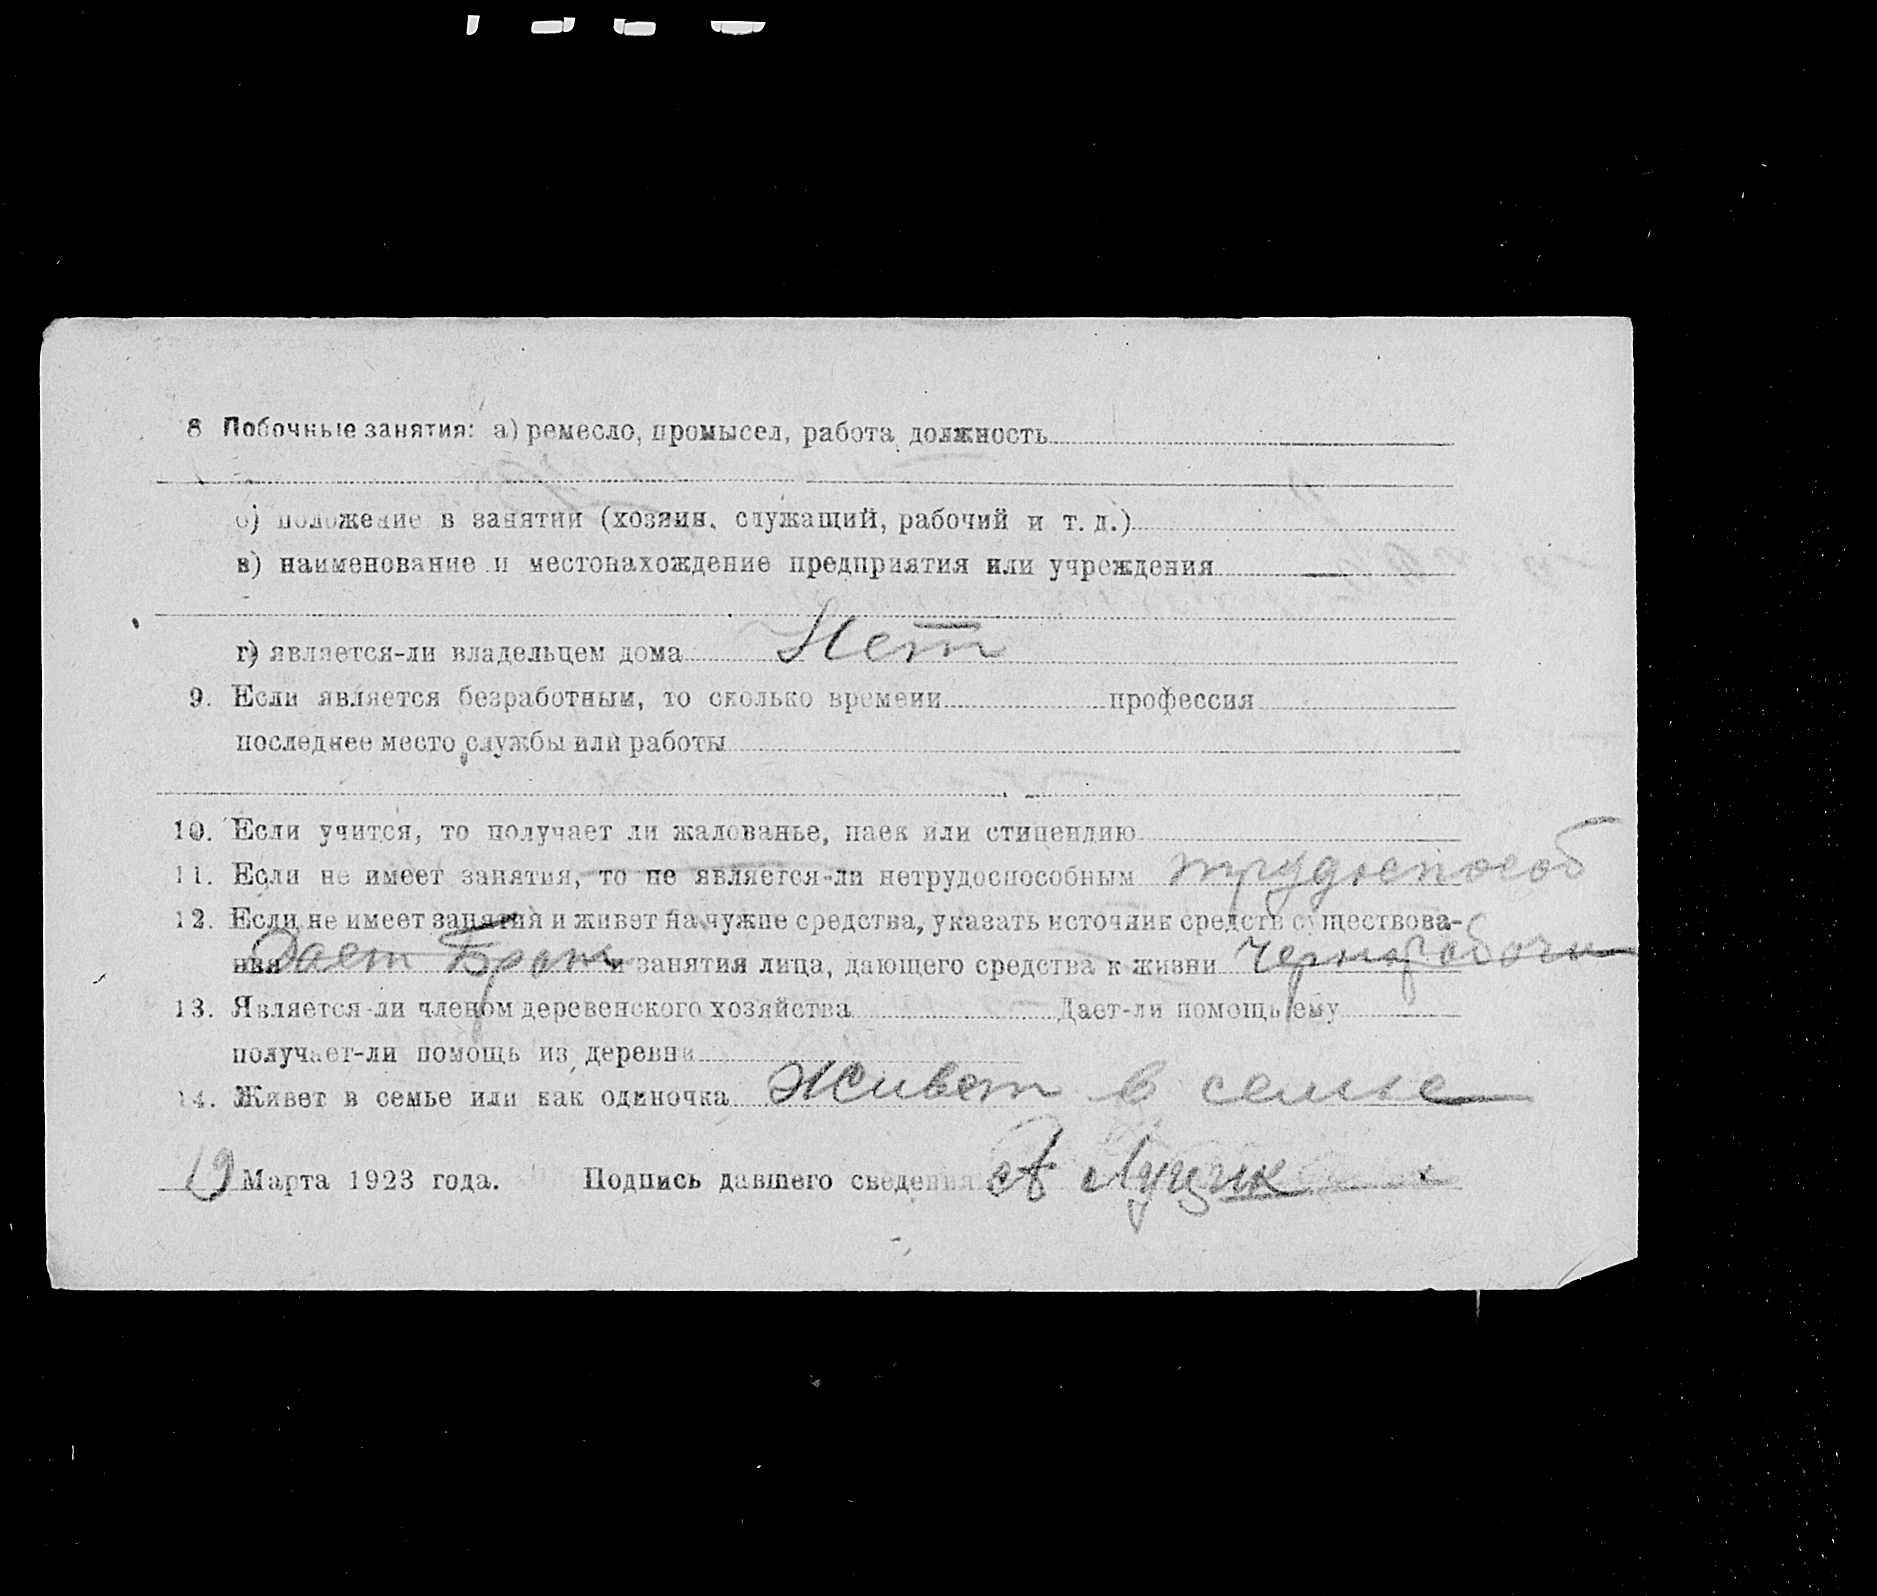 8 Побочные занятия: а) ремесло, промысел, работа должность
б) положение в занятии (хозяин, служащий, рабочий и т. д.)
в) наименование и местонахождение предприятия или учреждения
г) является-ли владельцем дома Нет
9. Если является безработным, то сколько времени профессия
последнее место службы или работы
10. Если учится, то получает ли жалованье, паек или стипендию
11. Если не имеет занятия, то не является-ли нетрудоспособным трудоспособ
12. Если не имеет занятия и живет на чужие средства, указать источник средств существова-
ния Дает Брат и занятия лица, дающего средства к жизни Чернорабочи
13. Является-ли членом деревенского хозяйства Дает-ли помощь ему
получает-ли помощь из деревни
14. Живет в семье или как одиночка Живет в семье
19 Марта 1923 года. Подпись давшего сведения А Луцик